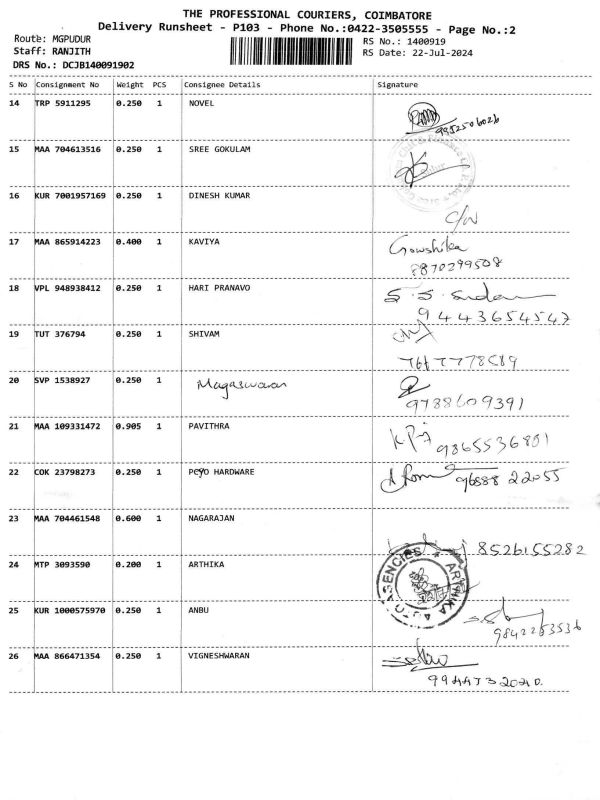 THE PROFESSIONAL COURIERS, COIMBATORE
Delivery Runsheet - P103 - Phone No.:0422-3505555 - Page No.:2
Route: MGPUDUR
RS No.: 1400919
Staff: RANJITH
RS Date: 22-Jul-2024
DRS No.: DCJB140091902
S No Consignment No Weight PCS Consignee Details Signature
14 TRP 5911295 0.250 1 NOVEL
9952506026
15 MAA 704613516 0.250 1 SREE GOKULAM
16 KUR 7001957169 0.250 1 DINESH KUMAR
C/N
17 MAA 865914223 0.400 1 KAVIYA Gowshika
8870299508
18 VPL 948938412 0.250 1 HARI PRANAVO
9443654547
19 TUT 376794 0.250 1 SHIVAM
20 SVP 1538927 0.250 1 Magaswaran
9788609391
21 MAA 109331472 0.905 1 PAVITHRA
9865536801
22 COK 23798273 0.250 1 HARDWARE
96888 22055
23 MAA 704461548 0.600 1 NAGARAJAN
8526155282
24 MTP 3093590 0.200 1 ARTHIKA
ARTHIKA AUTO AGENCIES
25 KUR 1000575970 0.250 1 ANBU
26 MAA 866471354 0.250 1 VIGNESHWARAN